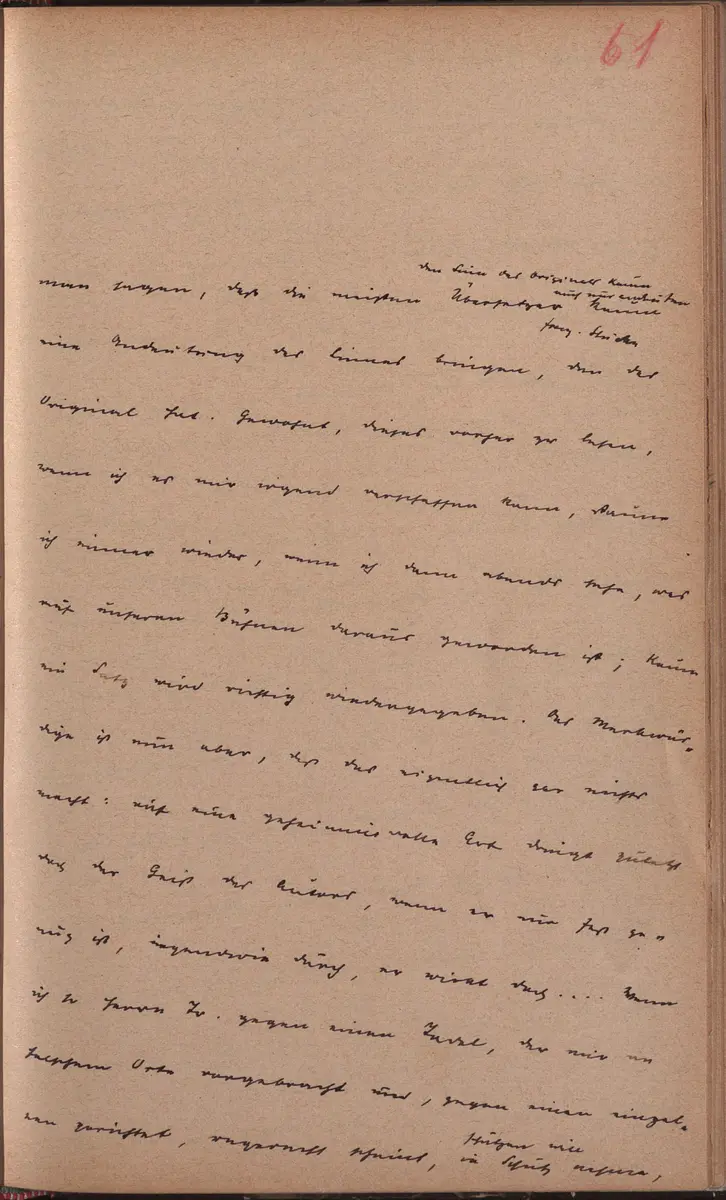 61
den Sinn des Originals kaum
auch nur andeuten
man sagen, daß die meisten Übersetzer kaum
franz. Stücke
eine Andeutung des Sinnes bringen, den das
Original hat. Gewohnt, dieses vorher zu lesen,
wenn ich es mir irgend verschaffen kann, staune
ich immer wieder, wenn ich dann abends sehe, was
auf unseren Bühnen daraus geworden ist; kaum
ein Satz wird richtig wiedergegeben. Das Merkwür-
dige ist nun aber, daß das eigentlich gar nichts
macht: auf eine geheimnisvolle Art dringt zuletzt
doch der Geist des Autors, wenn er nur fest ge-
nug ist, irgendwie durch, er wirkt doch.... Wenn
ich so Herrn Tr. gegen einen Tadel, der mir an
falschem Orte vorgebracht und, gegen einen einzel-
nen gerichtet, ungerecht scheint, in Schutz nehme,
schützen will